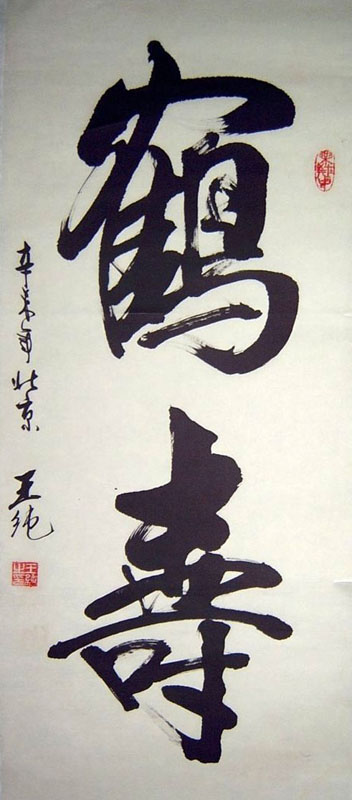 鶴壽
辛未年北京 王純